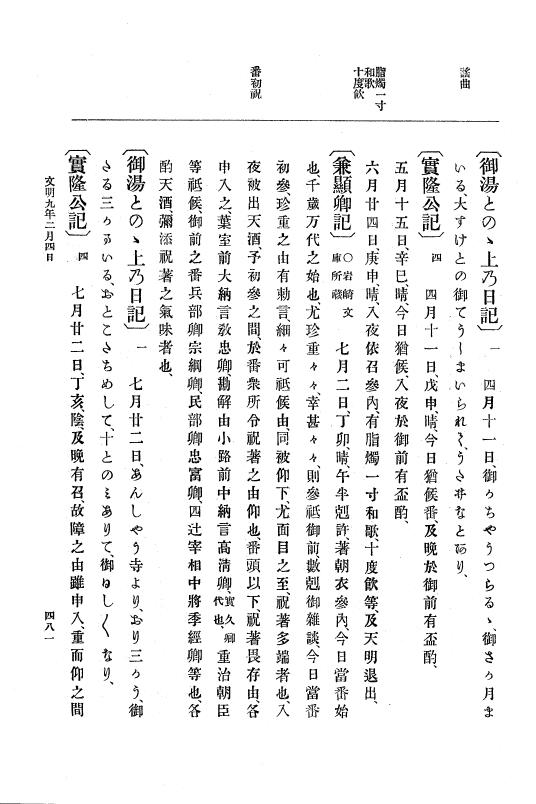 謡曲
脂燭一寸
和歌
十度飲
番初祝
〔御湯とのゝ上乃日記〕 一 四月十一日、御うちやうつらるゝ、御さう月ま
いる、大すけとの御てうしまいられ候、うさ井なとあり、
〔實隆公記〕 四 四月十一日、戊申晴、今日猶候番、及晩於御前有盃酌、
五月十五日、辛巳、晴、今日猶候、入夜於御前有盃酌、
六月廿四日、庚申、晴、入夜依召參内、有脂燭一寸和歌、十度飲等、及天明退出、
〔兼顯卿記〕 〇岩崎文庫所藏 七月二日、丁卯晴、午半剋許著朝衣參内、今日當番始
也、千歲万代之始也、尤珍重々々、幸甚々々、則參祗御前、數剋御雜談、今日當番
初參、珍重之由有勅言、細々可祗候由、同被仰下、尤面目之至、祝著多端者也、入
夜被出天酒、予初參之間、於番衆所令祝著之由仰也、番頭以下、祝著畏存由、各
申入之、葉室前大納言敎忠卿、勘解由小路前中納言高淸卿、實久卿代也、重治朝臣
等祗候御前之番、兵部卿宗綱卿、民部卿忠富卿、四辻宰相中將季經卿等也、各
酌天酒、彌添祝著之氣味者也、
〔御湯とのゝ上乃日記〕 一 七月廿二日、あんしやう寺より、おり三かう、御
さる三かうまいる、おとこさちめして、十とのミありて、御ひしひしなり、
〔實隆公記〕 四 七月廿二日、丁亥、陰、及晩有召、故障之由雖申入、重而仰之間
文明九年二月四日
四八一